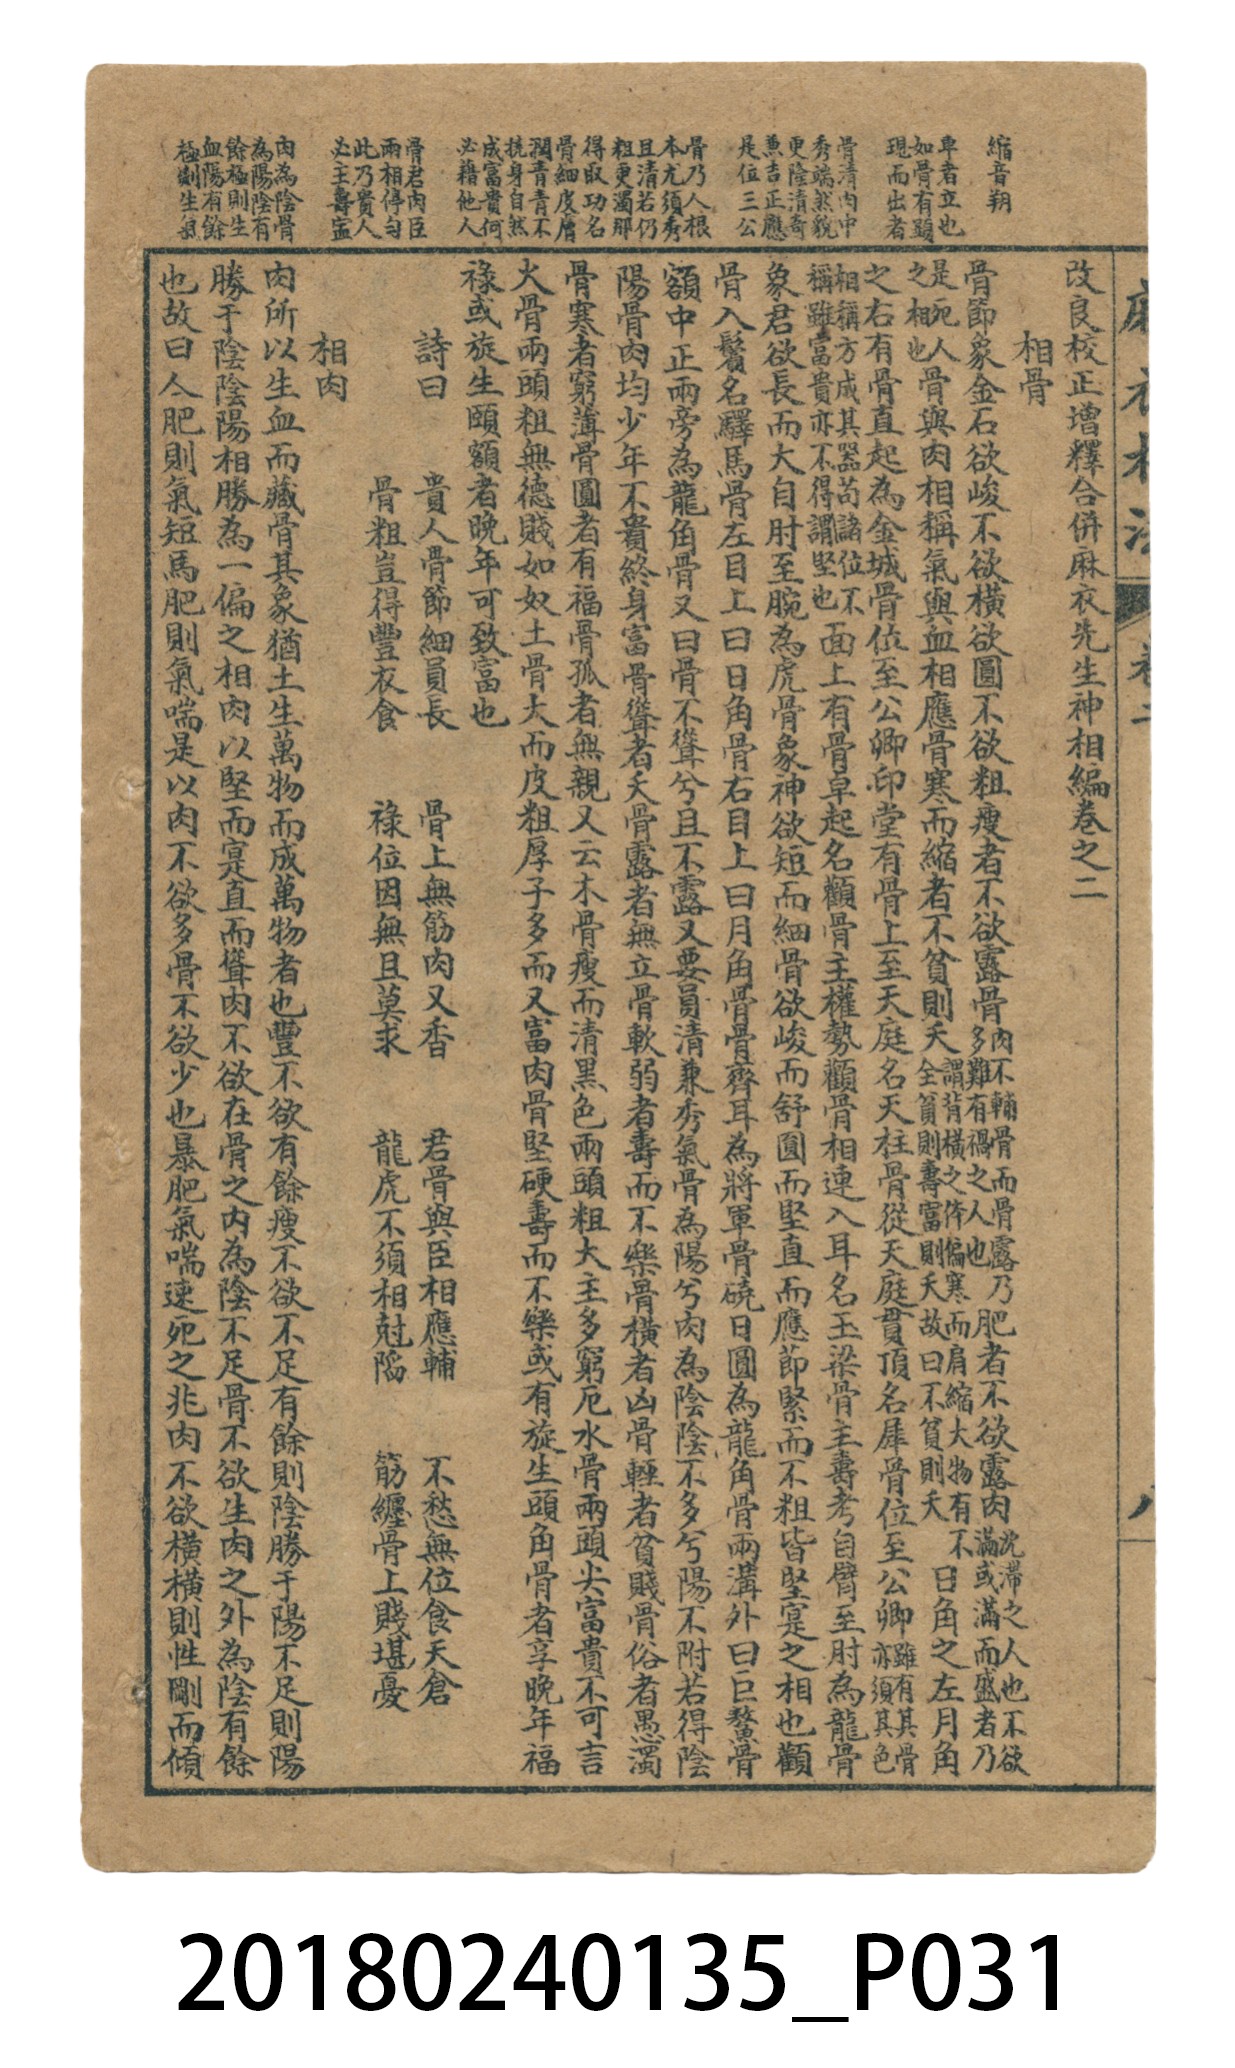 縮音朔
卑者立也
如骨有頭
現而出者
骨清內中
秀端然貌
更隆清奇
兼吉正應
是位三公
骨乃人根
本尤須秀
且清若仍
粗更濁那
得取功名
骨細皮膚
潤青青不
撓身自然
成富貴何
必藉他人
骨君肉臣
兩相停勻
此乃貴人
必主壽寔
肉為陰骨
為陽陰有
餘極則生
血陽有餘
極則生氣
麻衣相法 卷二 八
改良校正增釋合併麻衣先生神相編卷之二
相骨
骨節象金石欲峻不欲橫欲圓不欲粗瘦者不欲露骨肉不輔骨而骨露乃多難有禍之人也肥者不欲露肉沈滯之人也不欲滿或滿而盛者乃
是死人之相也骨與肉相稱氣與血相應骨寒而縮者不貧則夭謂背橫之体偏寒而肩縮大物有不全貧則壽富則夭故曰不貧則夭日角之左月角
之右有骨直起為金城骨位至公卿印堂有骨上至天庭名天柱骨從天庭貫頂名犀骨位至公卿雖有其骨亦須其色
相稱方成其器苟諸位不稱雖富貴亦不得謂堅也面上有骨卓起名顴骨主權勢顴骨相連入耳名玉梁骨主壽考自臂至肘為龍骨
象君欲長而大自肘至腕為虎骨象神欲短而細骨欲峻而舒圓而堅直而應節緊而不粗皆堅寔之相也顴
骨入鬢名驛馬骨左目上曰日角骨右目上曰月角骨骨齊耳為將軍骨磽日圓為龍角骨兩溝外曰巨鰲骨
額中正兩旁為龍角骨又曰骨不聳兮且不露又要員清兼秀氣骨為陽兮肉為陰陰不多兮陽不附若得陰
陽骨肉均少年不貴終身富骨聳者夭骨露者無立骨軟弱者壽而不樂骨橫者凶骨輕者貧賤骨俗者愚濁
骨寒者窮薄骨圓者有福骨孤者無親又云木骨瘦而清黑色兩頭粗大主多窮厄水骨兩頭尖富貴不可言
火骨兩頭粗無德賤如奴土骨大而皮粗厚子多而又富肉骨堅硬壽而不樂或有旋生頭角骨者享晚年福
祿或旋生頤額者晚年可致富也
詩曰 貴人骨節細員長 骨上無筋肉又香 君骨與臣相應輔 不愁無位食天倉
骨粗豈得豐衣食 祿位因無且莫求 龍虎不須相尅陷 筋纏骨上賤堪憂
相肉
肉所以生血而藏骨其象猶土生萬物而成萬物者也豐不欲有餘瘦不欲不足有餘則陰勝于陽不足則陽
勝于陰陰陽相勝為一偏之相肉以堅而寔直而聳肉不欲在骨之內為陰不足骨不欲生肉之外為陰有餘
也故曰人肥則氣短馬肥則氣喘是以肉不欲多骨不欲少也暴肥氣喘速死之兆肉不欲橫橫則性剛而傾
20180240135_P031